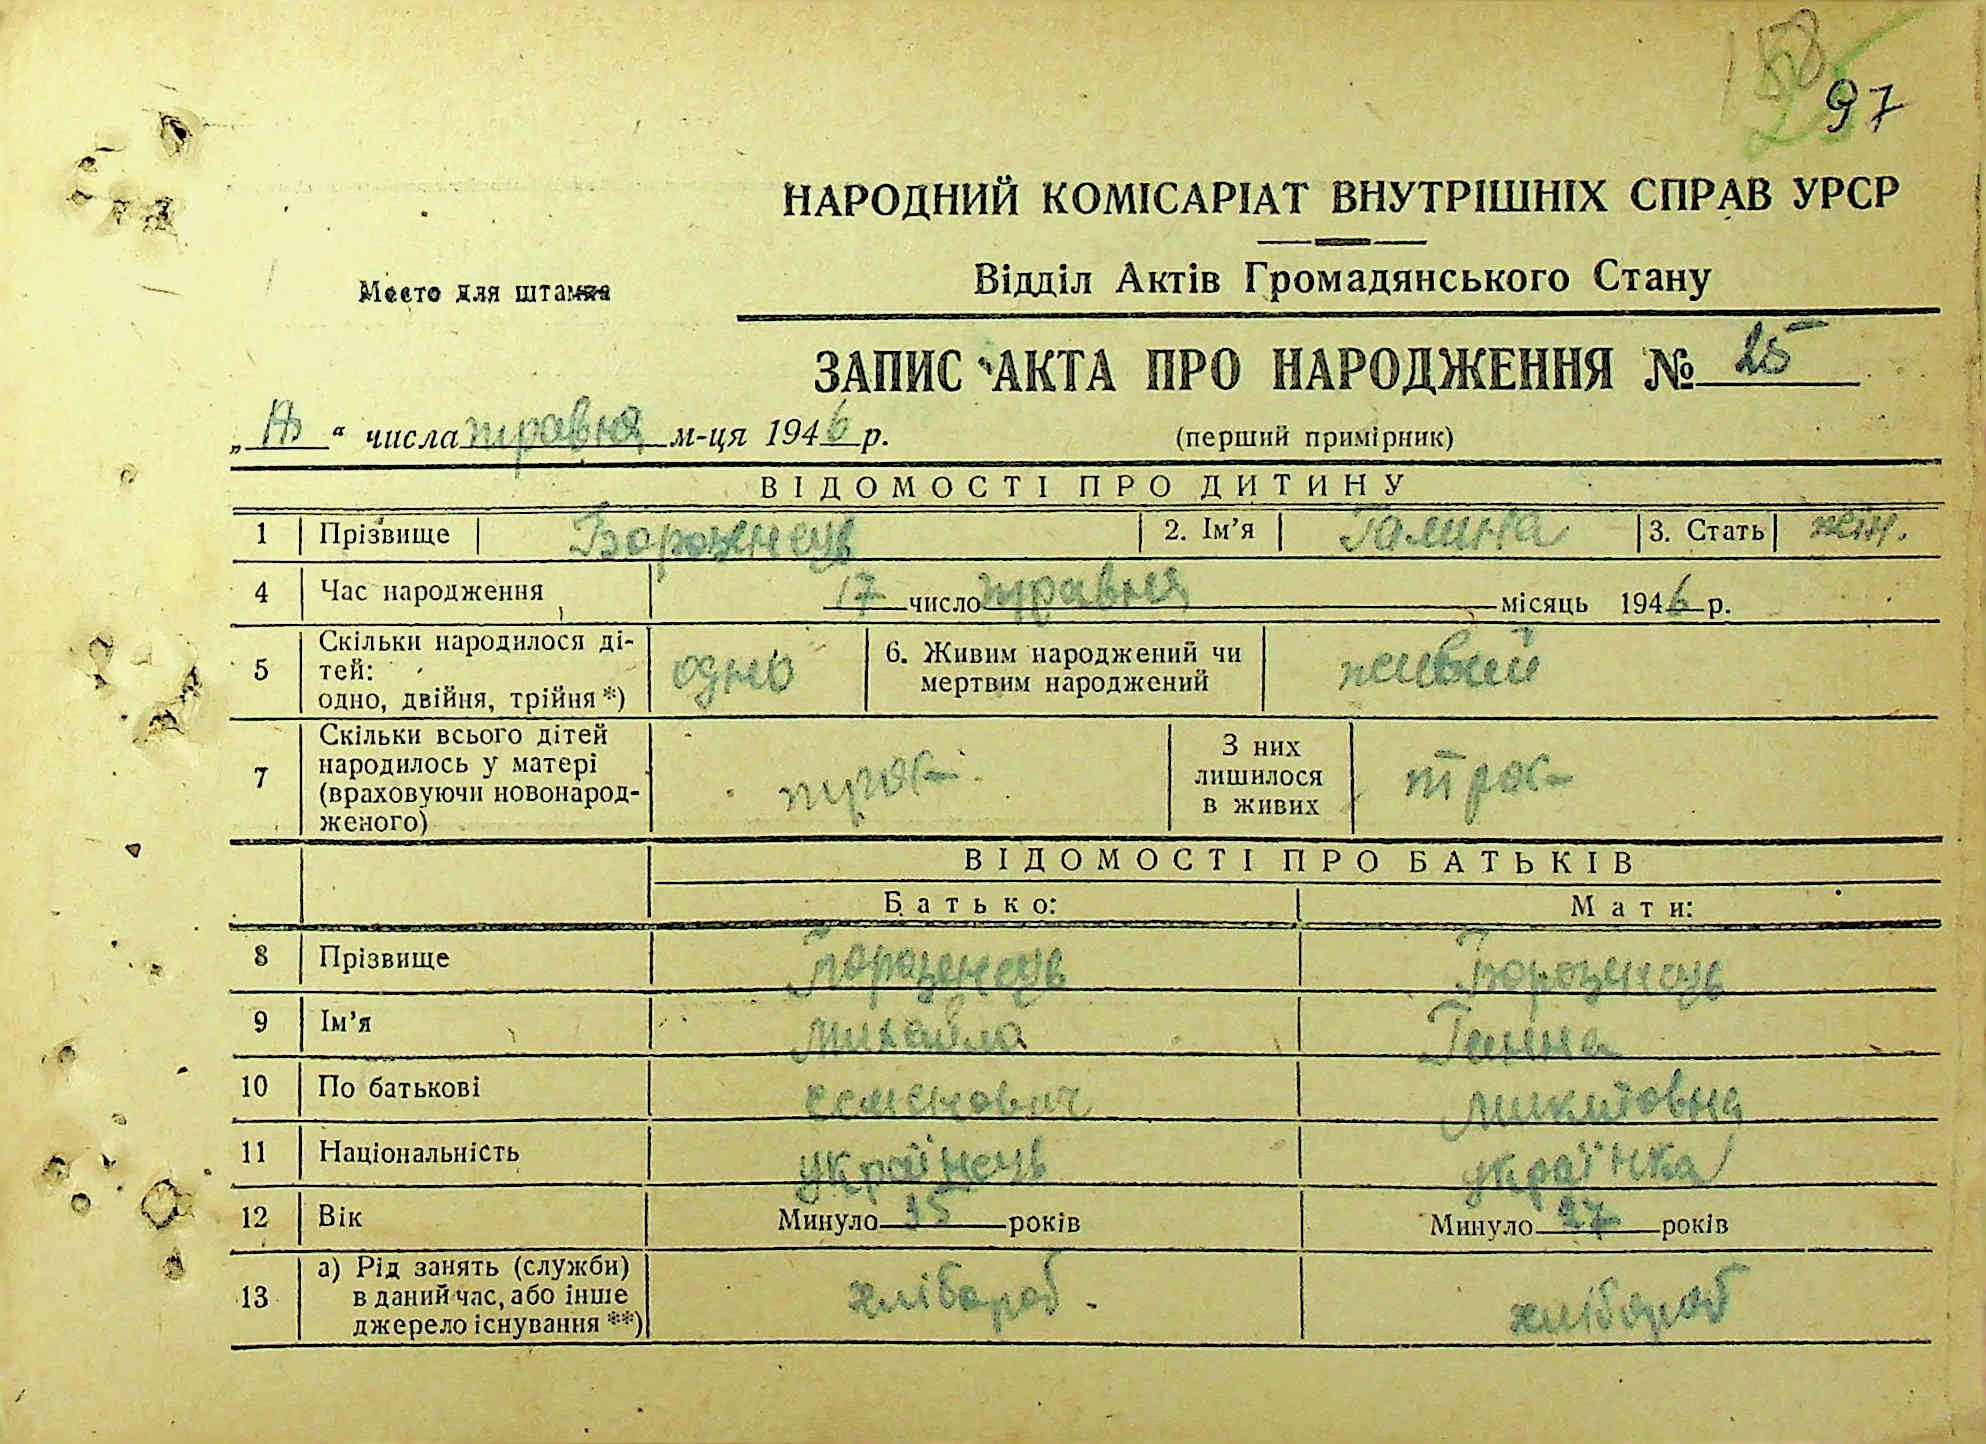 97
НАРОДНИЙ КОМІСАРІАТ ВНУТРІШНІХ СПРАВ УРСР
Відділ Актів Громадянського Стану
Место для штампа
ЗАПИС АКТА ПРО НАРОДЖЕННЯ № 25
„ “ числа травня м-ця 1946 р.
(перший примірник)
ВІДОМОСТІ ПРО ДИТИНУ
1 Прізвище 2. Ім'я Галина 3. Стать жін.
4 Час народження 17 число травня місяць 1946 р.
5 Скільки народилося ді-
тей:
одно, двійня, трійня *) одно 6. Живим народжений чи
мертвим народжений живий
7 Скільки всього дітей
народилось у матері
(враховуючи новонарод-
женого) троє З них
лишилося
в живих троє
ВІДОМОСТІ ПРО БАТЬКІВ
Батько: Мати:
8 Прізвище
9 Ім'я Михайло Ганна
10 По батькові Семенович Микитовна
11 Національність українець українка
12 Вік Минуло 35 років Минуло 37 років
13 а) Рід занять (служби)
в даний час, або інше
джерело існування **) хлібороб хлібороб